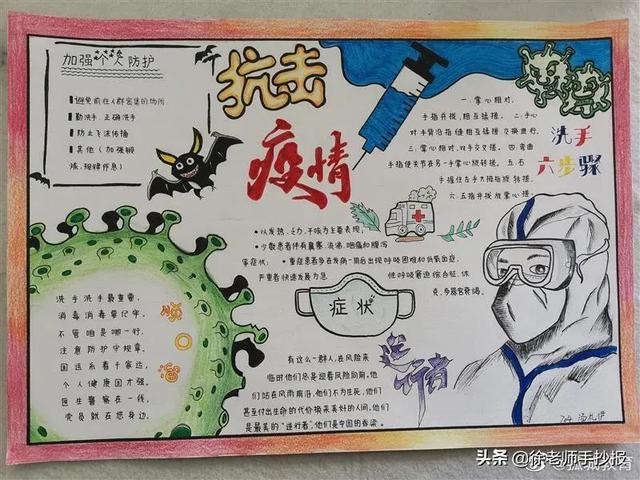 加强个人防护
避免前往人群密集的场所
勤洗手、正确洗手
防止飞沫传播
其他(加强锻
炼,规律作息)
抗击
疫情
一、掌心相对,
手指并拢,相互揉搓。二、手心
对手背沿指缝相互揉搓,交换进行。
三、掌心相对,双手交叉搓。四、弯曲
手指使关节在另一手掌心旋转搓。五、右
手握住左手大拇指旋转搓。
六、五指并拢放掌心搓。
洗手
六步骤
以发热、乏力、干咳为主要表现,
少数患者伴有鼻塞、流涕、咽痛和腹泻
等症状;
重症患者多在发病一周后出现呼吸困难和低氧血症,
严重者快速发展为急
性呼吸窘迫综合征、休
克、多器官衰竭。
症状
洗手洗手最重要,
消毒消毒要记牢。
不管咱是哪一行,
注意防护守规章。
国运系着千家运,
个人健康国才强。
医生警察在一线,
党员就在您身边。
顺口溜
逆行者
有这么一群人,在风险来
临时他们总是迎着风险向前,他
们站在风雨前沿,他们不为生死,他们
甚至付出生命的代价换来美好的人间,他们
是最美的“逆行者”,他们是中国的脊梁。
704
头条 @徐老师手抄报
@孤城教育